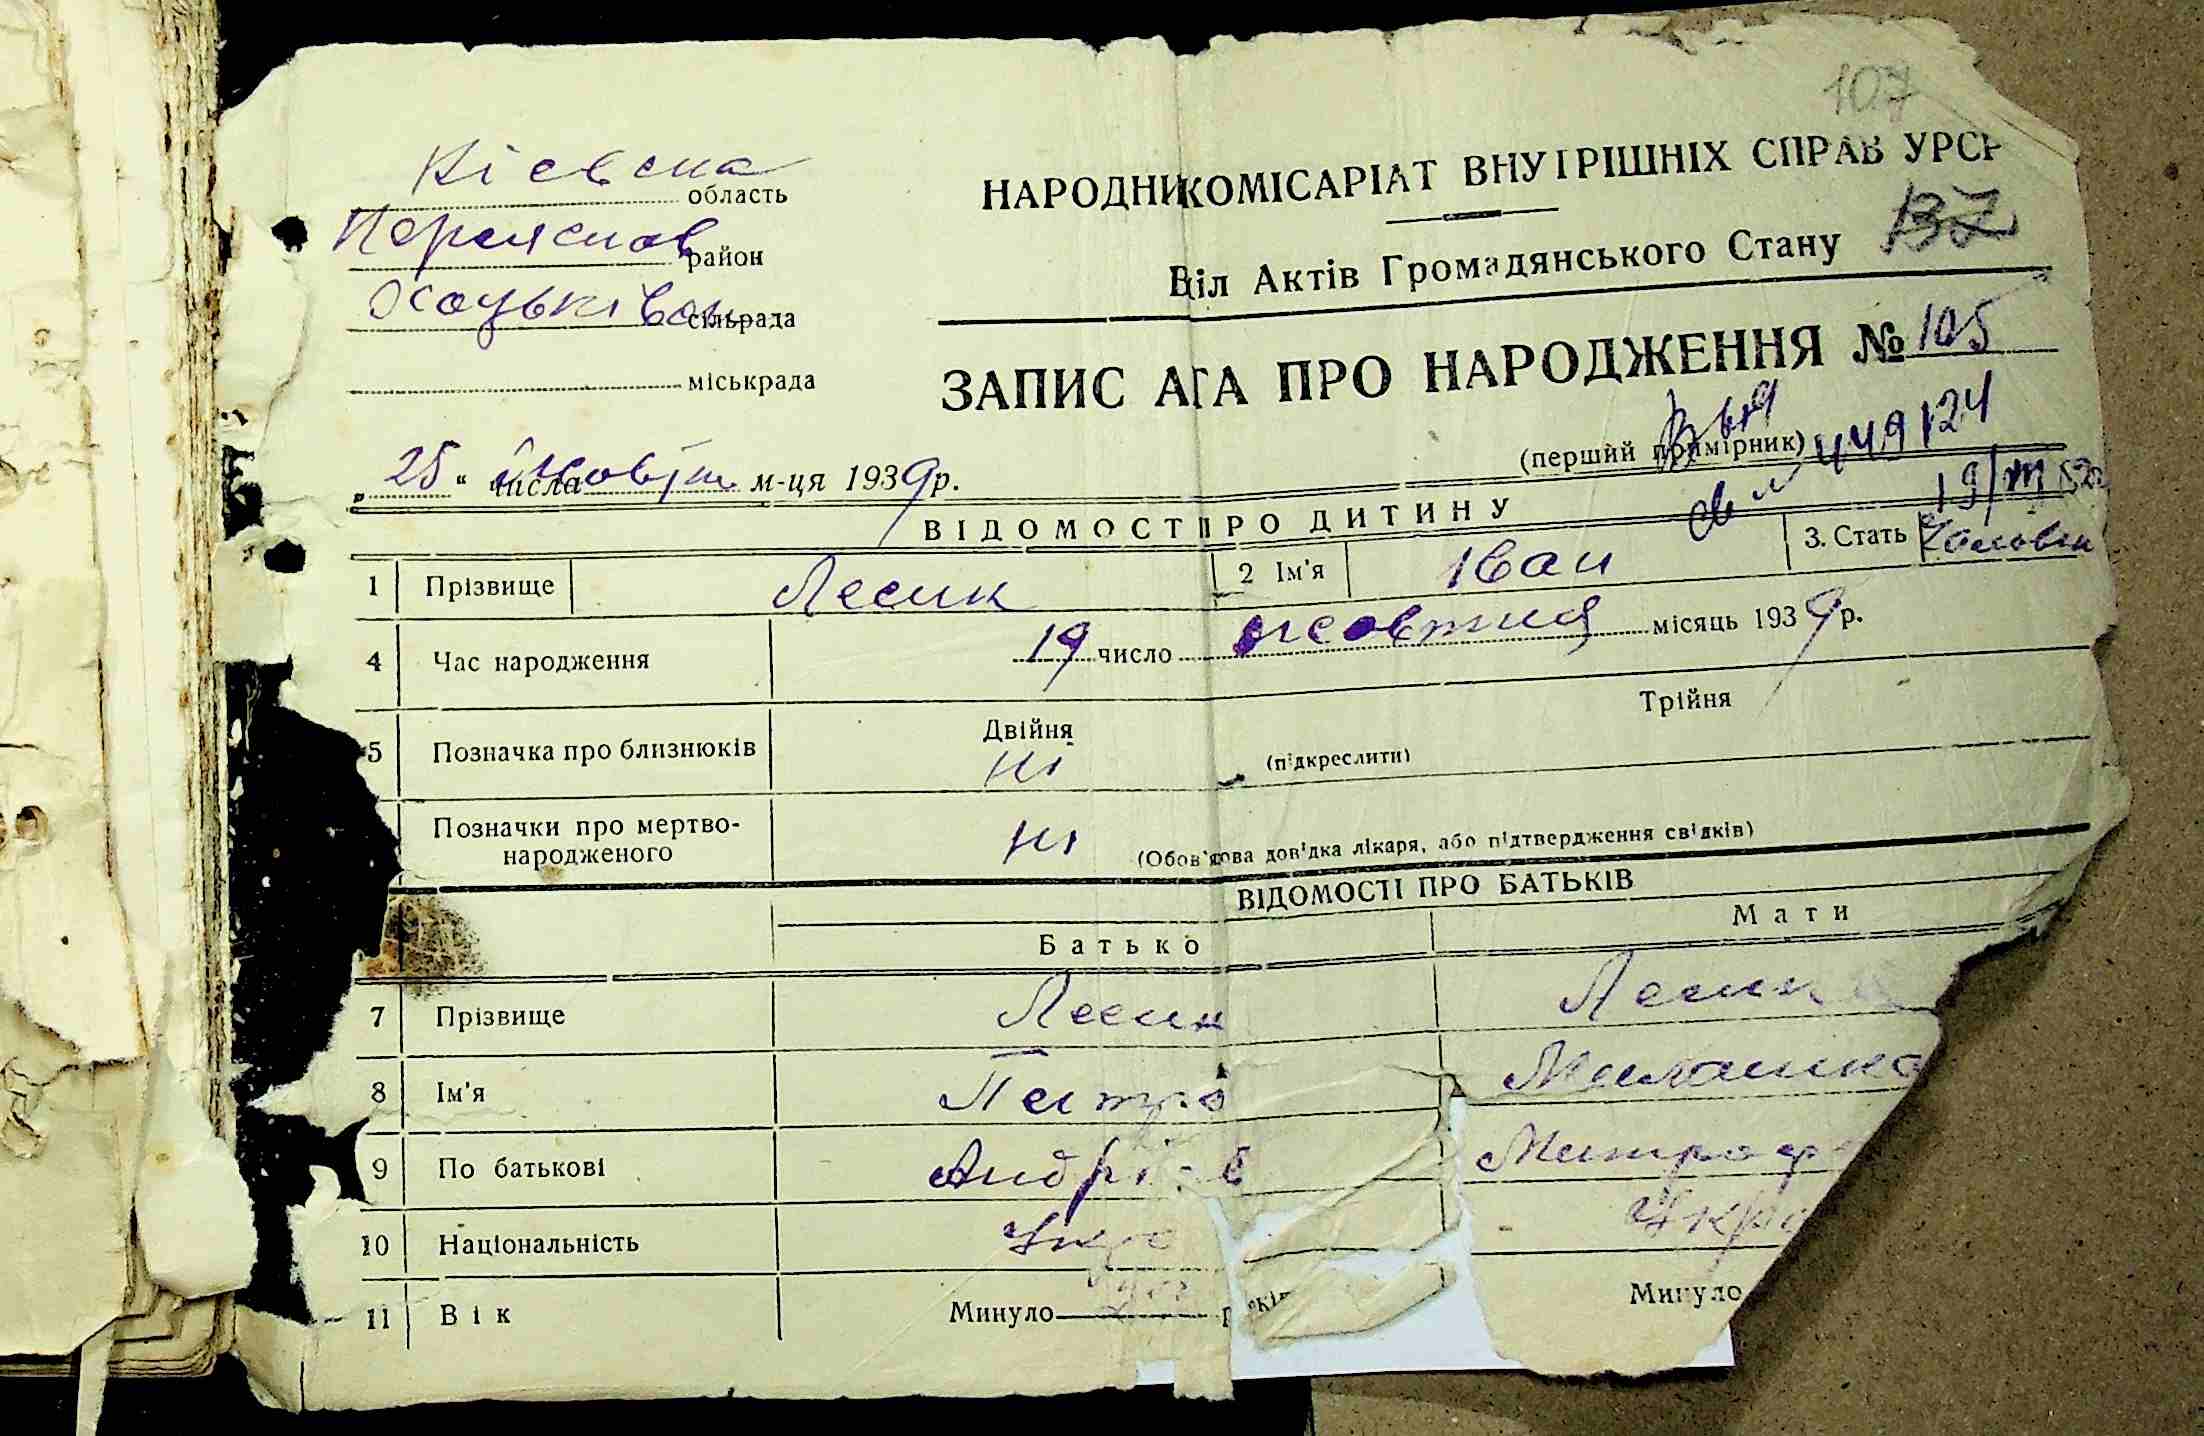 107
Кієвска область
Переяслов район
Хоцьківск сільрада
міськрада
НАРОДНИКОМІСАРІАТ ВНУТРІШНІХ СПРАВ УРСР
137
Віл Актів Громадянського Стану
ЗАПИС АГА ПРО НАРОДЖЕННЯ № 105
(перший примірник)
449124
19/III 52
„25“ числа жовтня м-ця 1939р.
ВІДОМОСТ ПРО ДИТИНУ
1 Прізвище Лесик 2 Ім'я Іван 3. Стать Чоловіч
4 Час народження 19 число жовтня місяць 1939р.
5 Позначка про близнюків Двійня ні (підкреслити) Трійня
Позначки про мертво-
народженого ні (Обов'язкова довідка лікаря, або підтвердження свідків)
ВІДОМОСТІ ПРО БАТЬКІВ
Батько Мати
7 Прізвище Лесик Лесик
8 Ім'я Петро Миланка
9 По батькові Андрі Митроф
10 Національність Укр Укра
11 Вік Минуло Минуло